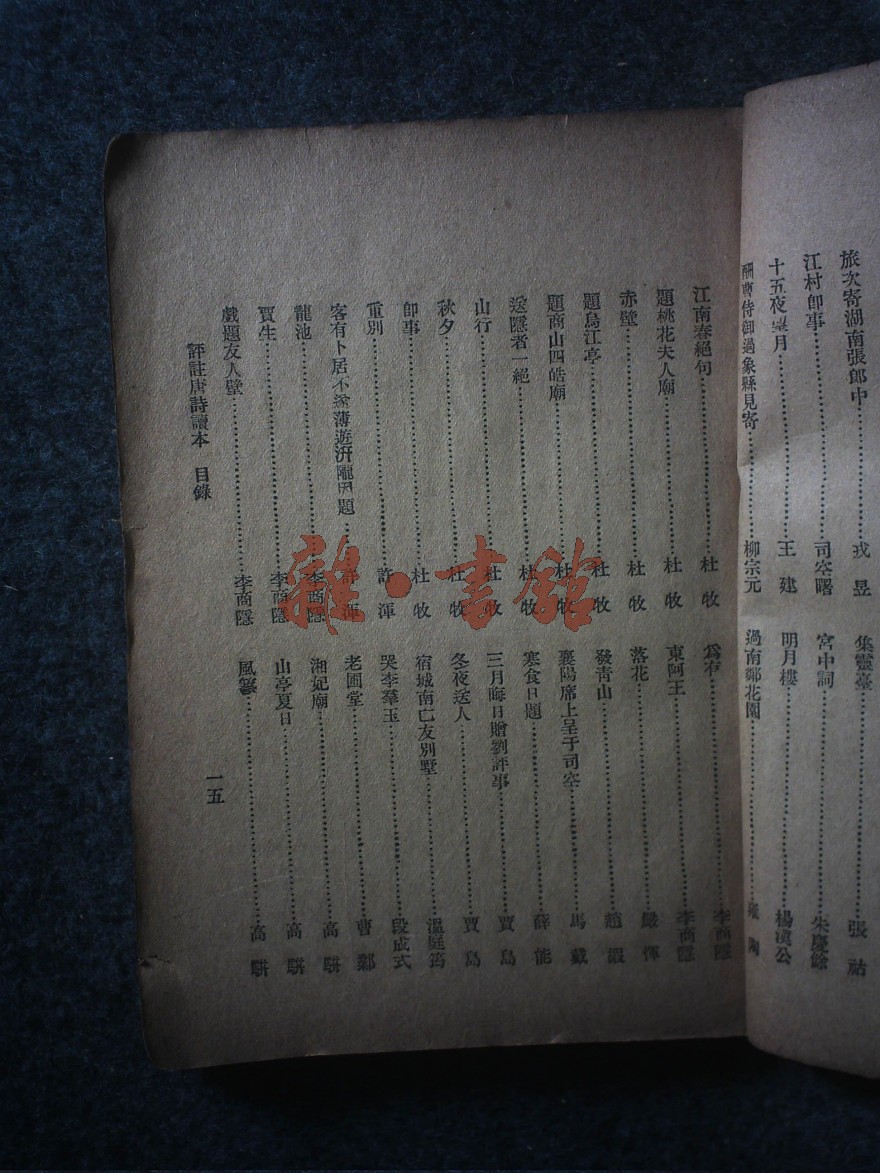 旅次寄湖南張郎中……戎昱
江村卽事……司空曙
十五夜望月……王建
酬曹侍御過象縣見寄……柳宗元
集靈臺……張祜
宮中詞……朱慶餘
明月樓……楊漢公
過南鄰花園……雍陶
江南春絕句……杜牧
題桃花夫人廟……杜牧
赤壁……杜牧
題烏江亭……杜牧
題商山四皓廟……杜牧
送隱者一絕……杜牧
山行……杜牧
秋夕……杜牧
卽事……杜牧
重別……許渾
客有卜居不遂薄遊汧隴因題……許渾
龍池……李商隱
賈生……李商隱
戲題友人壁……李商隱
爲有……李商隱
東阿王……李商隱
落花……嚴惲
發靑山……趙嘏
襄陽席上呈于司空……馬戴
寒食日題……薛能
三月晦日贈劉評事……賈島
冬夜送人……賈島
宿城南亡友別墅……溫庭筠
哭李羣玉……段成式
老圃堂……曹鄴
湘妃廟……高駢
山亭夏日……高駢
風箏……高駢
評註唐詩讀本 目錄
一五
雜·書館